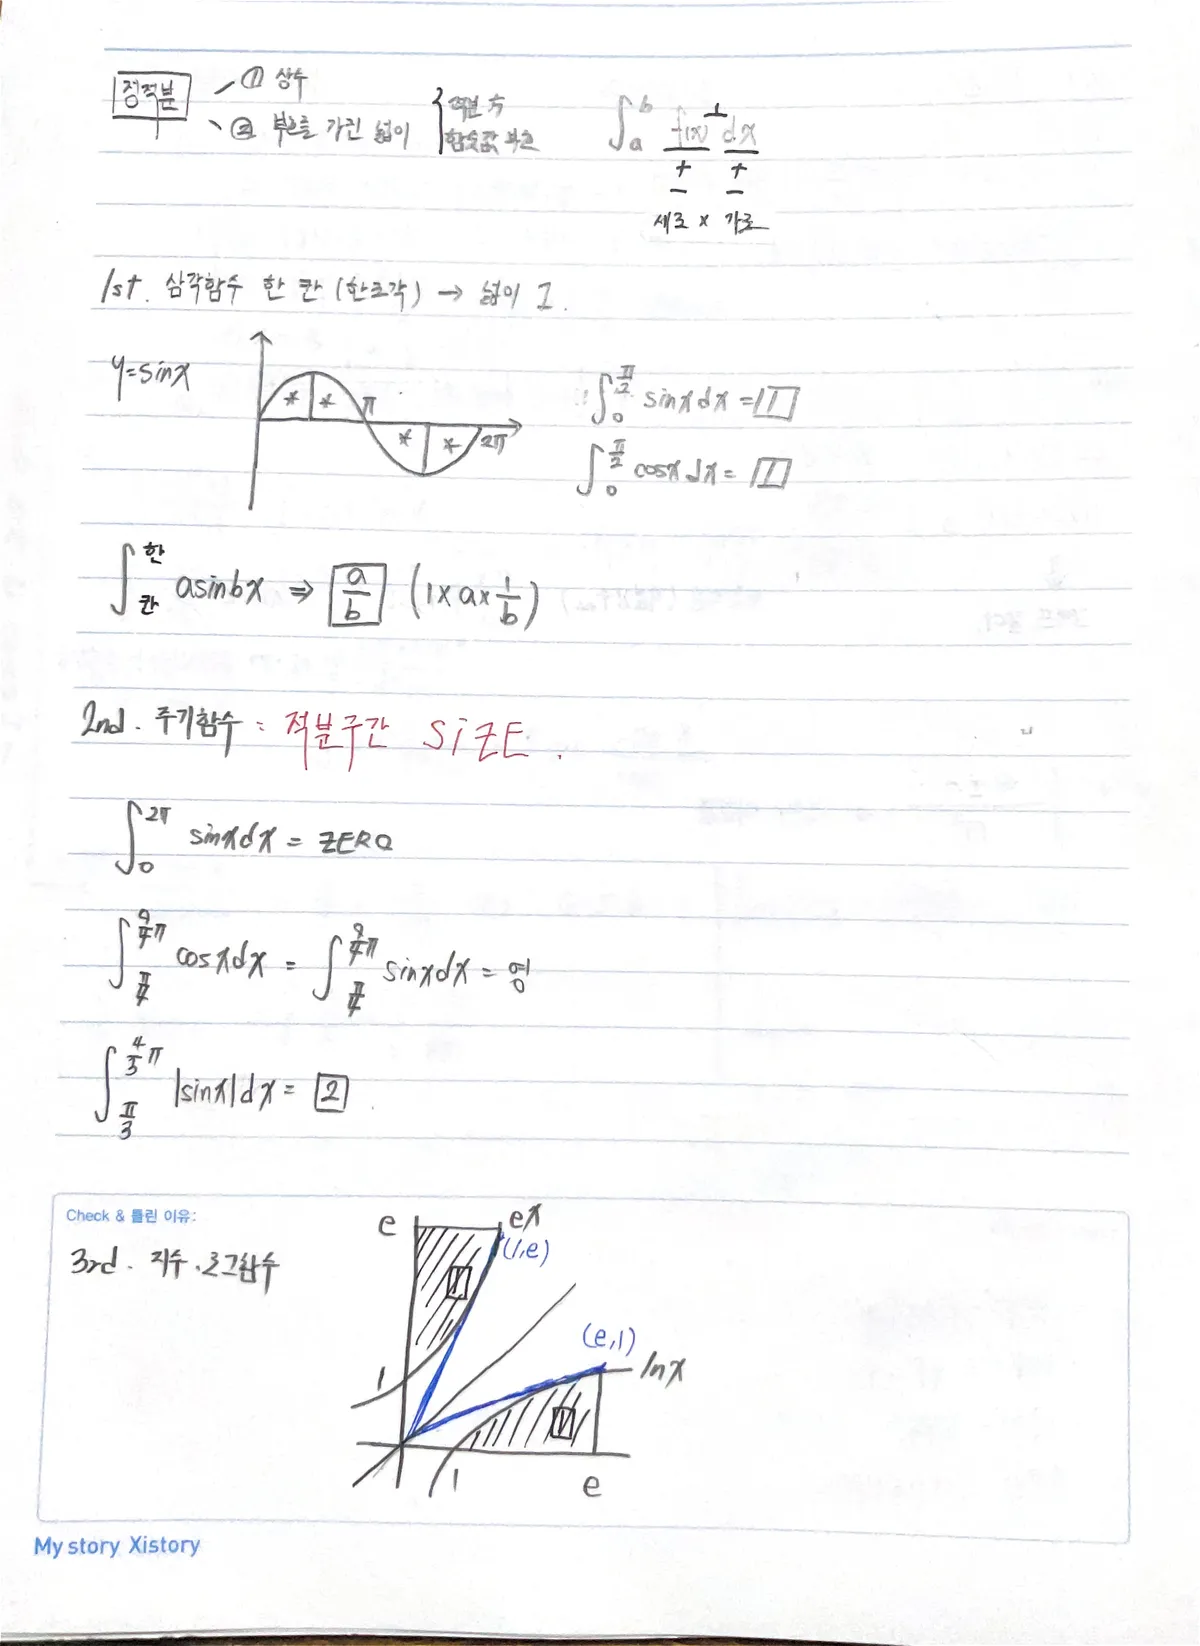 정적분 ① 상수
② 부호를 가진 넓이 { 적분 方 함숫값 부호
∫_a^b f(x) dx
+ +
− −
세로 x 가로
1st. 삼각함수 한 칸 (한조각) → 넓이 1.
y=sinx
π
2π
∫_0^{π/2} sinxdx = 1
∫_0^{π/2} cosxdx = 1
∫_칸^한 asinbx ⇒ a/b (1×a×1/b)
2nd. 주기함수 : 적분구간 SiZE.
∫_0^{2π} sinxdx = ZERO
∫_{π/4}^{9/4π} cosxdx = ∫_{π/4}^{9/4π} sinxdx = 영
∫_{π/3}^{4/3π} |sinx|dx = 2
Check & 틀린 이유:
3rd. 지수·로그함수
e e^x
(1,e)
1
(e,1)
lnx
1
1
1 e
My story Xistory